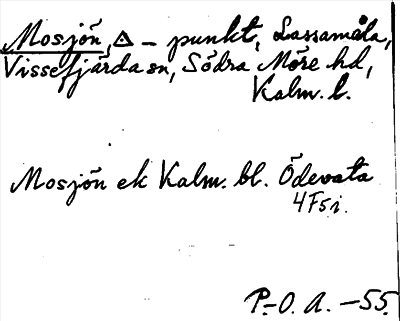 Mosjön, △ - punkt, Lassamåla,
Vissefjärda sn, Södra Möre hd,
Kalm. l.
Mosjön ek Kalm. bl. Ödevata
4F5i.
P.-O. A. -55.